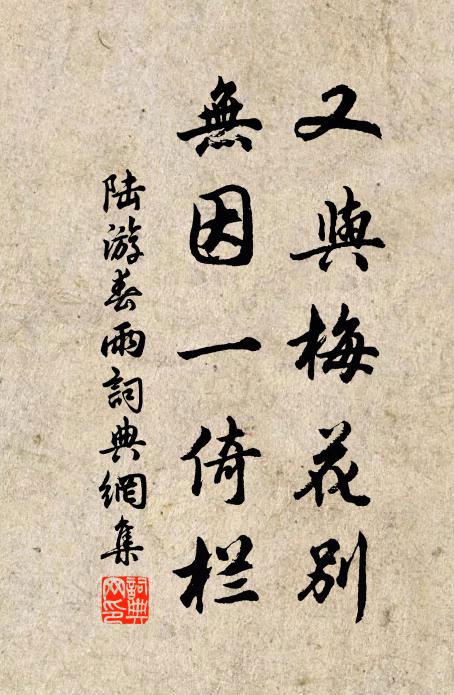 又與梅花別
無因一倚栏
陆游春雨詞典網集
詞典網印